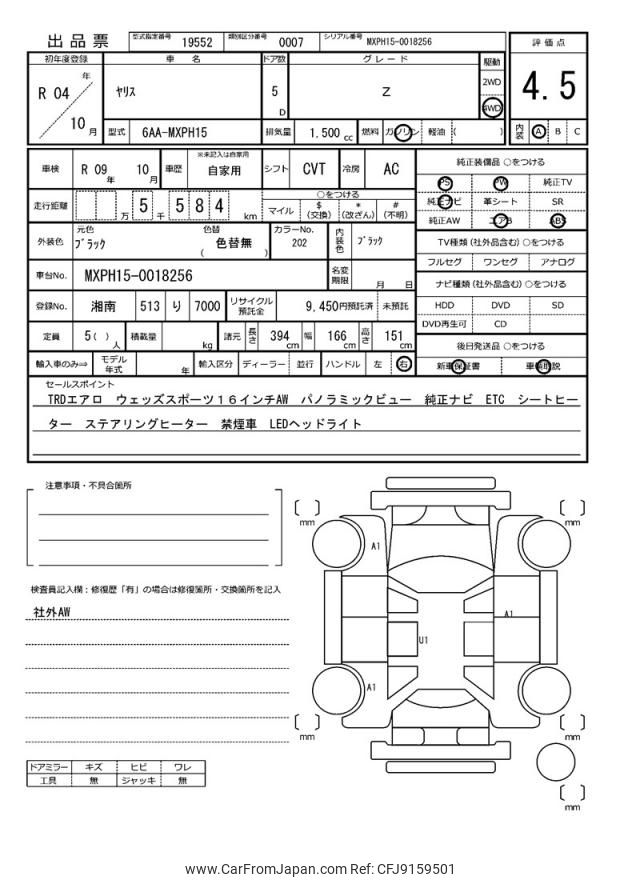 出品票 型式指定番号 19552 類別区分番号 0007 シリアル番号 MXPH15-0018256
評価点
4.5
内装 A B C
初年度登録 車名 ドア数 グレード 駆動
R 04 年 ヤリス 5 D Z 2WD
4WD
10 月 型式 6AA-MXPH15 排気量 1.500 cc 燃料 ガソリン 軽油 ( )
車検 R 09 年 10 月 車歴 ※未記入は自家用 自家用 シフト CVT 冷房 AC
走行距離 万 5 千 5 8 4 km
○をつける
マイル $ (交換) * (改ざん) # (不明)
外装色 元色 ブラック 色替 色替無 ( ) カラーNo. 202 内装色 ブラック
車台No. MXPH15-0018256 名変期限 月 日
登録No. 湘南 513 り 7000 リサイクル預託金 9,450円預託済 未預託
定員 5( ) 人 積載量 kg 諸元 長さ 394 cm 幅 166 cm 高さ 151 cm
輸入車のみ⇒ モデル年式 年 輸入区分 ディーラー 並行 ハンドル 左 右
純正装備品 ○をつける
PS PW 純正TV
純正ナビ 革シート SR
純正AW エアB ABS
TV種類(社外品含む) ○をつける
フルセグ ワンセグ アナログ
ナビ種類(社外品含む) ○をつける
HDD DVD SD
DVD再生可 CD
後日発送品 ○をつける
新車保証書 車輌取説
セールスポイント
TRDエアロ ウェッズスポーツ16インチAW パノラミックビュー 純正ナビ ETC シートヒー
ター ステアリングヒーター 禁煙車 LEDヘッドライト
注意事項・不具合箇所
検査員記入欄：修復歴「有」の場合は修復箇所・交換箇所を記入
社外AW
ドアミラー キズ ヒビ ワレ
工具 無 ジャッキ 無
mm
mm
A1
A1
U1
A1
mm
mm
mm
www.CarFromJapan.com Ref: CFJ9159501